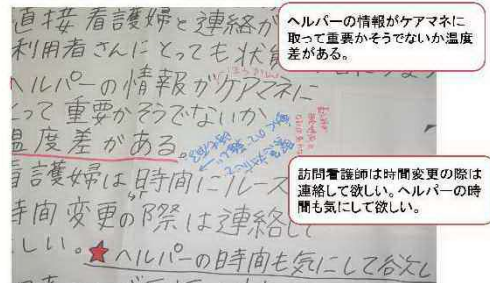 直接看護婦と連絡が
利用者さんにとっても状態
ヘルパーの情報がケアマネに
とって重要かそうでないか
温度差がある。
看護婦は時間にルーズ
時間変更の際は連絡して
しい。★ヘルパーの時間も気にして欲し
ヘルパーの情報がケアマネに
取って重要かそうでないか温度
差がある。
訪問看護師は時間変更の際は
連絡して欲しい。ヘルパーの時
間も気にして欲しい。